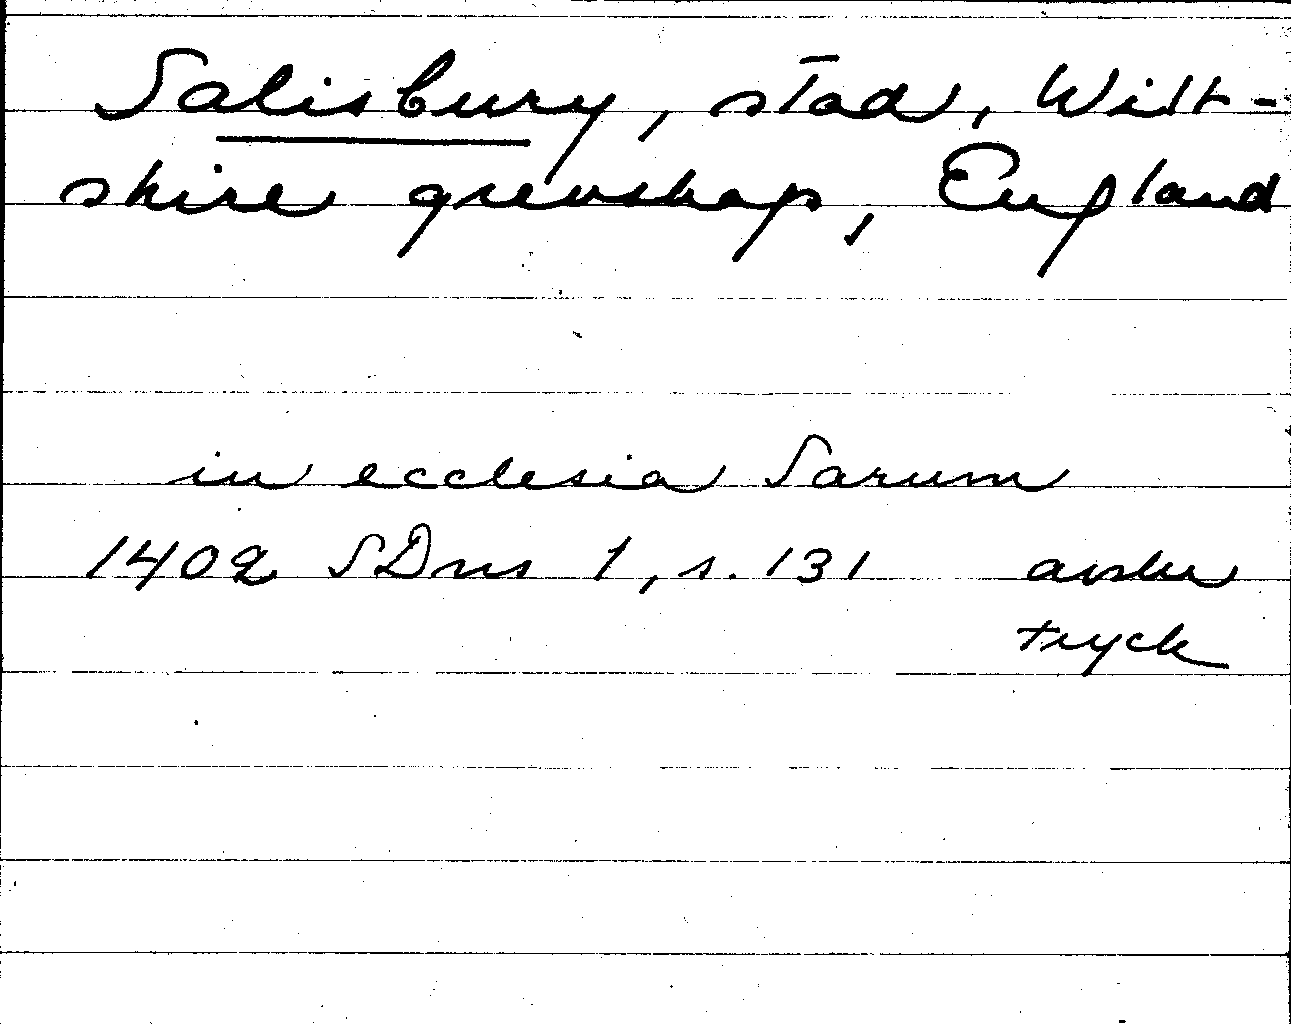 Salisbury, stad, Wilt-
shire grevskap, England
in ecclesia Sarum
1402 SDns 1, s. 131 avskr
tryck